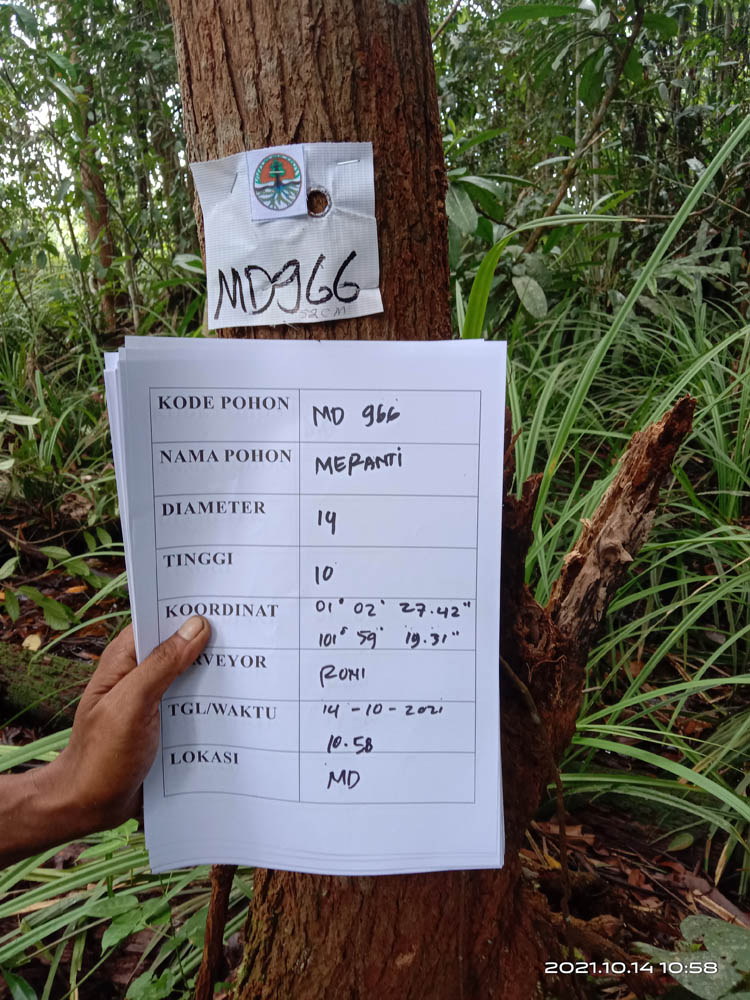 MD966
52CM
KODE POHON MD 966
NAMA POHON MERANTI
DIAMETER 14
TINGGI 10
KOORDINAT 01° 02' 27.42"
101° 59' 19.31"
RVEYOR RONI
TGL/WAKTU 14-10-2021
10.58
LOKASI MD
2021.10.14 10:58